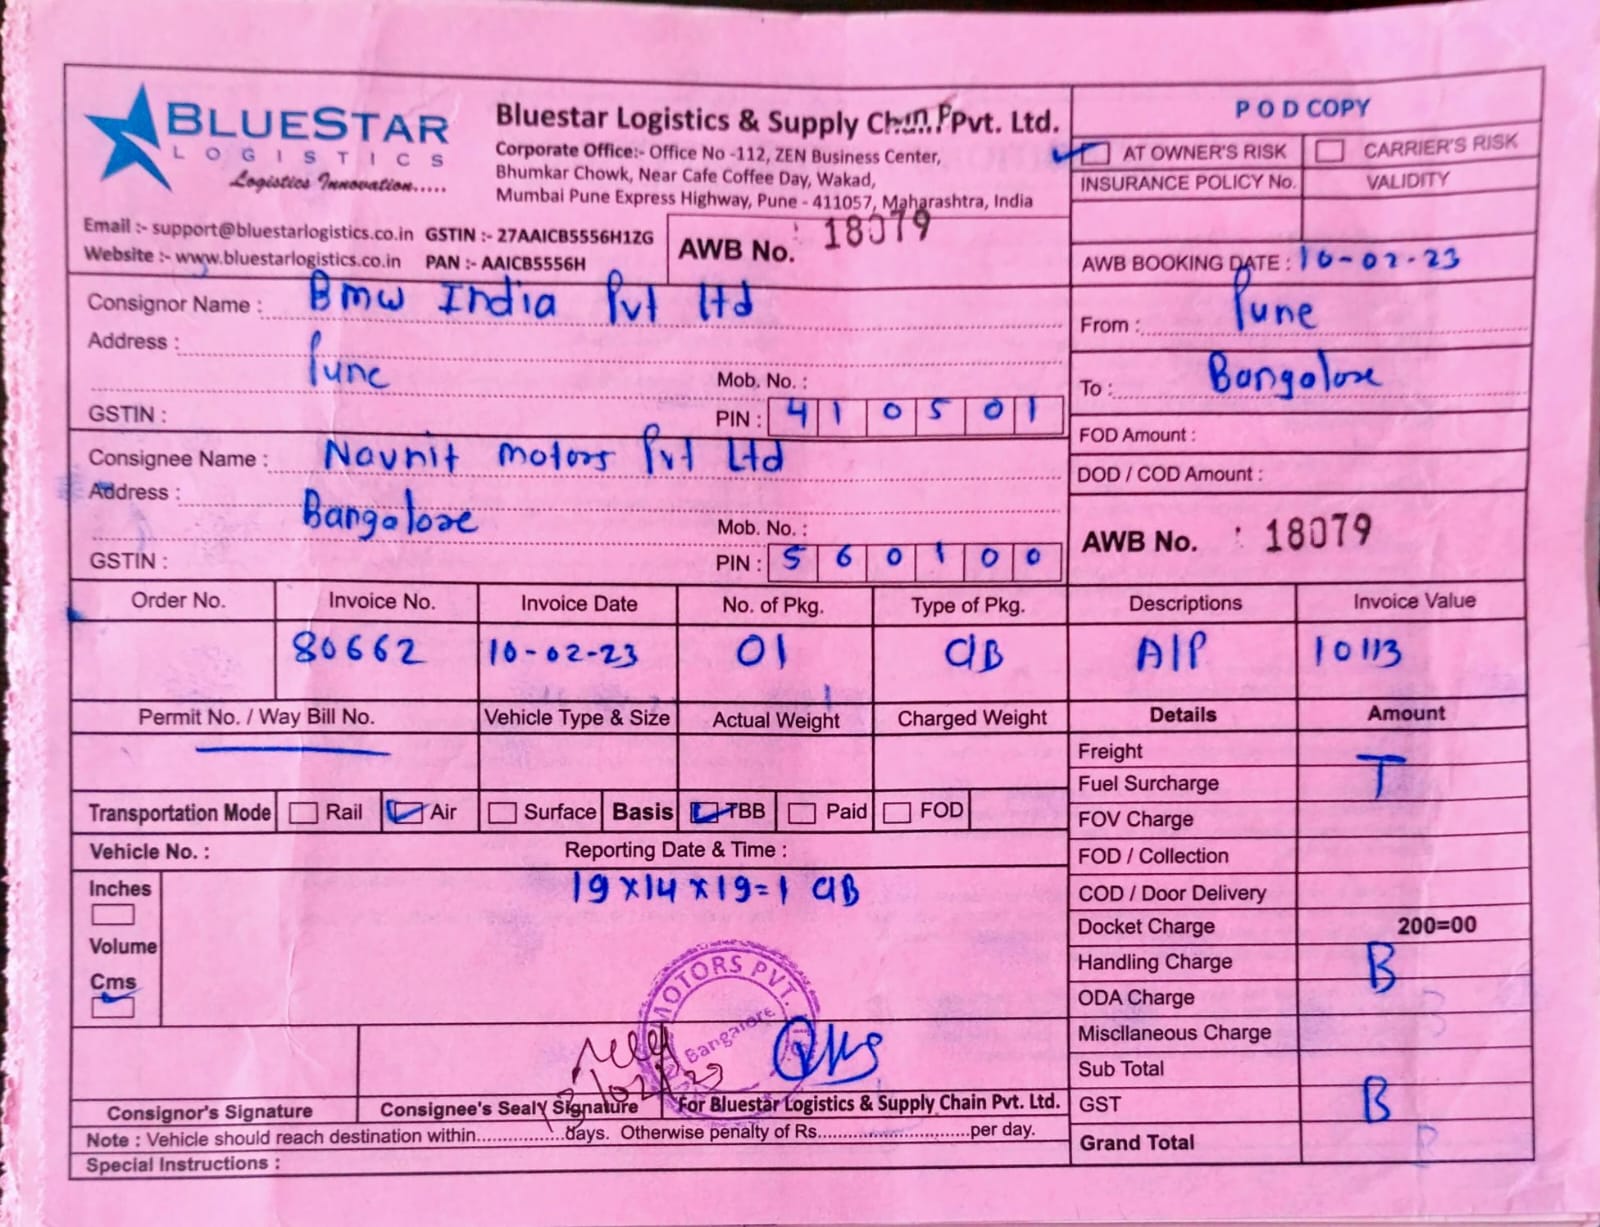 BLUESTAR
LOGISTICS
Logistics Innovation.....
Bluestar Logistics & Supply Chain Pvt. Ltd.
Corporate Office:- Office No -112, ZEN Business Center,
Bhumkar Chowk, Near Cafe Coffee Day, Wakad,
Mumbai Pune Express Highway, Pune - 411057, Maharashtra, India
Email :- support@bluestarlogistics.co.in GSTIN :- 27AAICB5556H1ZG
Website :- www.bluestarlogistics.co.in PAN :- AAICB5556H
AWB No. : 18079
POD COPY
AT OWNER'S RISK CARRIER'S RISK
INSURANCE POLICY No. VALIDITY
AWB BOOKING DATE : 10-02-23
Consignor Name : Bmw India Pvt Ltd
Address :
Pune
Mob. No. :
GSTIN : PIN : 410501
From : Pune
To : Bangalore
Consignee Name : Navnit motors Pvt Ltd
Address :
Bangalore
Mob. No. :
GSTIN : PIN : 560100
FOD Amount :
DOD / COD Amount :
AWB No. : 18079
Order No. Invoice No. Invoice Date No. of Pkg. Type of Pkg. Descriptions Invoice Value
80662 10-02-23 01 CIB A/P 10113
Permit No. / Way Bill No. Vehicle Type & Size Actual Weight Charged Weight Details Amount
Transportation Mode Rail Air Surface Basis TBB Paid FOD
Vehicle No. : Reporting Date & Time :
Inches
Volume
Cms
19x14x19=1 CIB
Freight
Fuel Surcharge T
FOV Charge
FOD / Collection
COD / Door Delivery
Docket Charge 200=00
Handling Charge B
ODA Charge
Miscllaneous Charge
Sub Total
GST B
Grand Total
MOTORS PVT.
Bangalore
Consignor's Signature Consignee's Sealy Signature For Bluestar Logistics & Supply Chain Pvt. Ltd.
Note : Vehicle should reach destination within..................days. Otherwise penalty of Rs..............................per day.
Special Instructions :